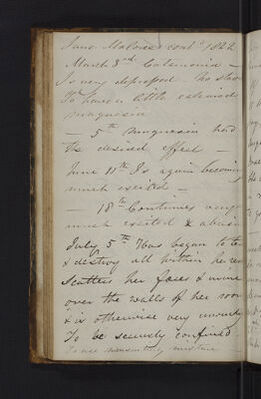 Jane Malone cont^d 1822
March 3^rd Catamenia -
Is very depressed No stool
To have a little calcined
magnesia
- 5^th Magnesia had
the desired effect -
June 11^th Is again becoming
much excited -
- 18^th Continues very
much excited &
July 5^th Has began to te
& destroy all within he
Scatters her faeces & urine
over the walls of her room
& is otherwise very unruly
To be securely confined